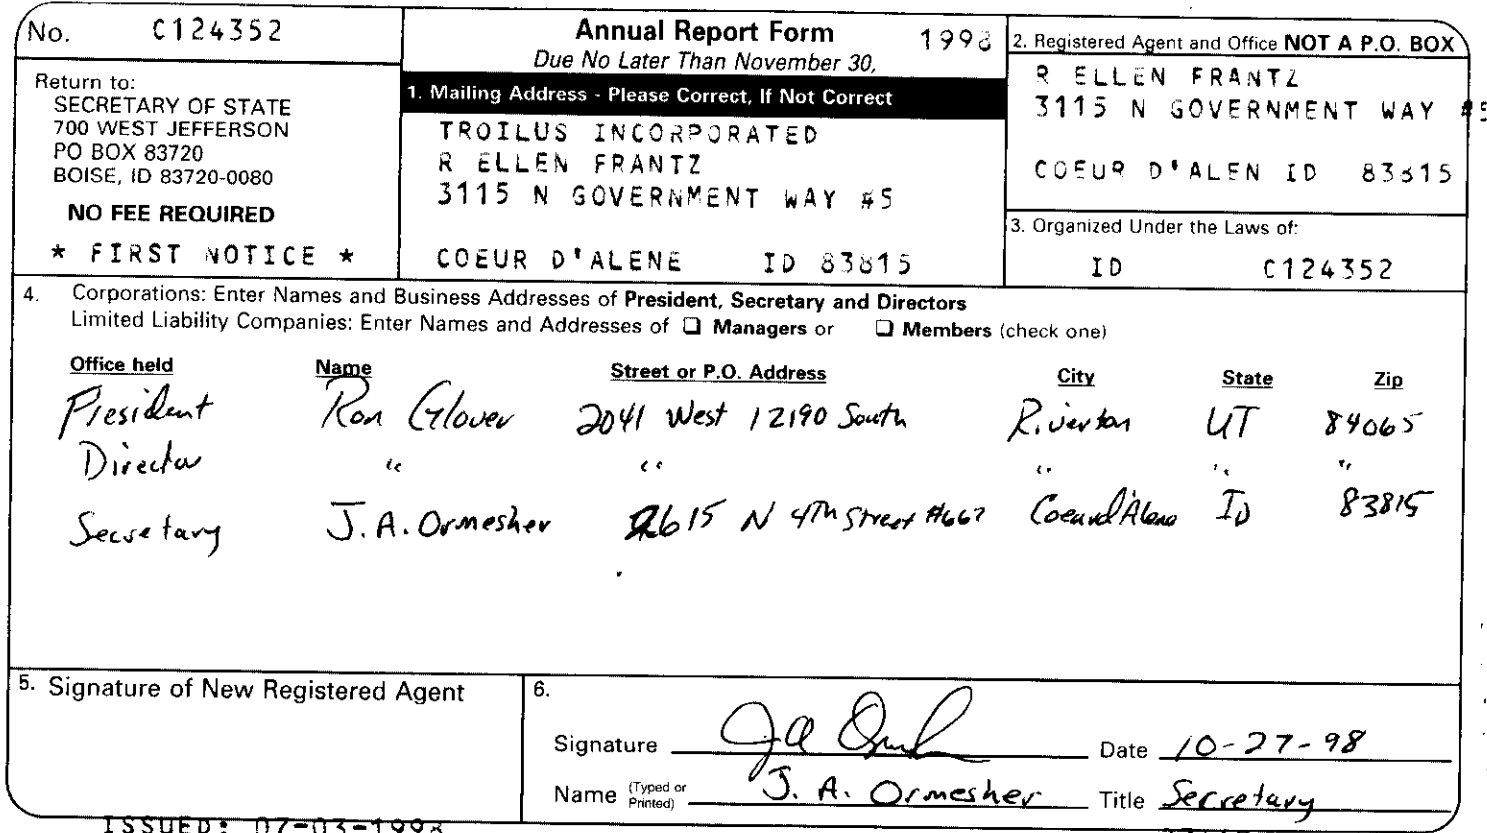 No. C124352
Return to:
SECRETARY OF STATE
700 WEST JEFFERSON
PO BOX 83720
BOISE, ID 83720-0080
NO FEE REQUIRED
* FIRST NOTICE *
Annual Report Form 1998
Due No Later Than November 30,
1. Mailing Address - Please Correct, If Not Correct
TROILUS INCORPORATED
R ELLEN FRANTZ
3115 N GOVERNMENT WAY #5
COEUR D'ALENE ID 83815
2. Registered Agent and Office NOT A P.O. BOX
R ELLEN FRANTZ
3115 N GOVERNMENT WAY #5
COEUR D'ALEN ID 83815
3. Organized Under the Laws of:
ID C124352
4. Corporations: Enter Names and Business Addresses of President, Secretary and Directors
Limited Liability Companies: Enter Names and Addresses of ❑ Managers or ❑ Members (check one)
Office held Name Street or P.O. Address City State Zip
President Ron Glover 2041 West 12190 South Riverton UT 84065
Director " " " " "
Secretary J.A. Ormesher 2615 N 4th Street #667 Coeur d'Alene ID 83815
5. Signature of New Registered Agent
6.
Signature JA Date 10-27-98
Name (Typed or Printed) J. A. Ormesher Title Secretary
ISSUED: 07-03-1998